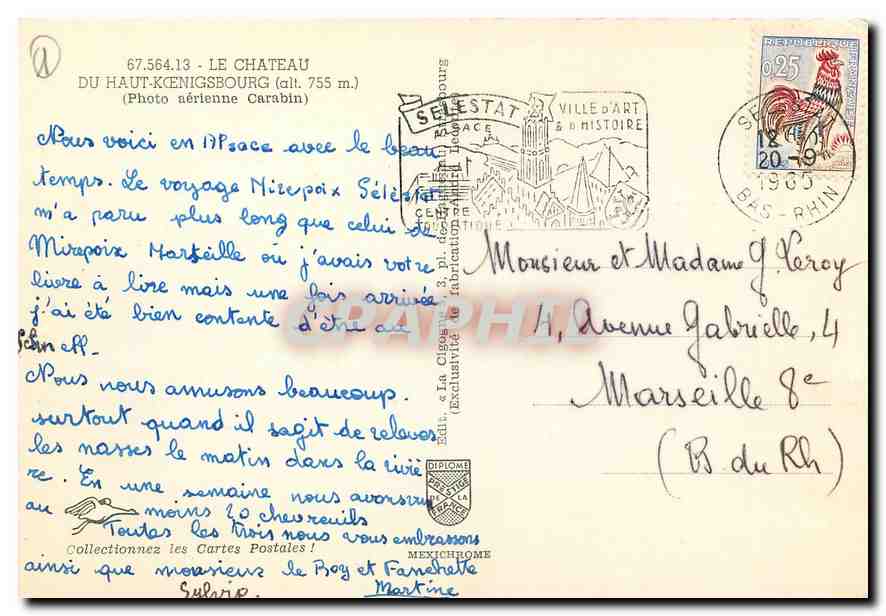 67.564.13 - LE CHATEAU
DU HAUT-KŒNIGSBOURG (alt. 755 m.)
(Photo aérienne Carabin)
Nous voici en Alsace avec le beau
temps. Le voyage Mirepoix Sélestat
m'a paru plus long que celui de
Mirepoix Marseille où j'avais votre
livre à lire mais une fois arrivée
j'ai été bien contente d'être au
Schnell.
Nous nous amusons beaucoup.
surtout quand il sagit de relever
les nasses le matin dans la riviè
re. En une semaine nous avons vu
au moins 20 chevreuils
Toutes les trois nous vous embrassons
Collectionnez les Cartes Postales !
ainsi que monsieur le Roy et Fanchette
Sylvie. Martine
Edit. « La Cigogne », 3, pl. de Strasbourg
(Exclusivité de fabrication André Leconte)
DIPLOME
PRESTIGE
DE LA
FRANCE
MEXICHROME
SELESTAT
ALSACE
VILLE D'ART
& D'HISTOIRE
CENTRE
TOURISTIQUE
REPUBLIQUE FRANCAISE
0,25
SELESTAT
12 H
20 - 9
1965
BAS-RHIN
Monsieur et Madame G. Leroy
4, Avenue Gabrielle, 4
Marseille 8e
(B. du Rh)
CPAPHIL